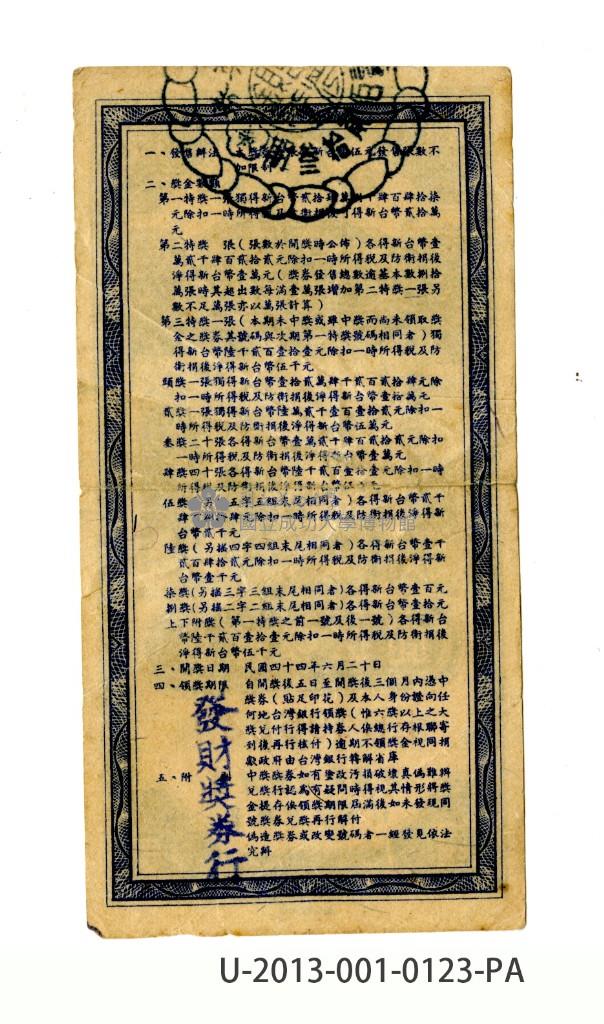 一、發售辦法 本獎券每張新台幣伍元發售張數不
加限制
二、獎金數額
第一特獎一張獨得新台幣貳拾肆萬捌千肆百肆拾柒
元除扣一時所得稅及防衛捐後可得新台幣貳拾萬元
第二特獎 張(張數於開獎時公佈)各得新台幣壹
萬貳千肆百貳拾貳元除扣一時所得稅及防衛捐後
淨得新台幣壹萬元(獎券發售總數逾基本數捌拾
萬張時其超出數每滿壹萬張增加第二特獎一張另
數不足萬張亦以萬張計算)
第三特獎一張(本期未中獎或雖中獎而尚未領取獎
金之獎券其號碼與次期第一特獎號碼相同者)獨
得新台幣陸千貳百壹拾壹元除扣一時所得稅及防
衛捐後淨得新台幣伍千元
頭獎一張獨得新台幣壹拾貳萬肆千貳百貳拾肆元除
扣一時所得稅及防衛捐後淨得新台幣壹拾萬元
貳獎一張獨得新台幣陸萬貳千壹百壹拾貳元除扣一
時所得稅及防衛捐後淨得新台幣伍萬元
叁獎二十張各得新台幣壹萬貳千肆百貳拾貳元除扣
一時所得稅及防衛捐後淨得新台幣壹萬元
肆獎四十張各得新台幣陸千貳百壹拾壹元除扣一時
所得稅及防衛捐後淨得新台幣伍千元
伍獎(另搖五字五組末尾相同者)各得新台幣貳千
肆百捌拾肆元除扣一時所得稅及防衛捐後淨得新
台幣貳千元
陸獎(另搖四字四組末尾相同者)各得新台幣壹千
貳百肆拾貳元除扣一時所得稅及防衛捐後淨得新
台幣壹千元
柒獎(另搖三字三組末尾相同者)各得新台幣壹百元
捌獎(另搖二字二組末尾相同者)各得新台幣壹拾元
上下附獎(第一特獎之前一號及後一號)各得新台
幣陸千貳百壹拾壹元除扣一時所得稅及防衛捐後
淨得新台幣伍千元
三、開獎日期 民國四十四年六月二十日
四、領獎期限 自開獎後五日至開獎後三個月內憑中
獎券(貼足印花)及本人身份證向任
何地台灣銀行領獎(惟六獎以上之大
獎兌付行得請持券人俟總行存根聯寄
到後再行核付)逾期不領獎金視同捐
獻政府由台灣銀行轉解省庫
五、附 中獎獎券如有塗改污損破壞真偽難辨
兌獎行認為有疑問時得視其情形將獎
金提存俟領獎期限屆滿後如未發現同
號獎券兌獎再行解付
偽造獎券或改變號碼者一經發見依法
究辦
發財獎券行
國立成功大學博物館
U-2013-001-0123-PA